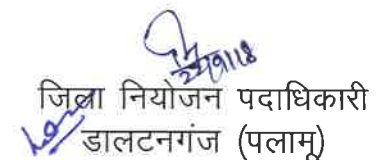 जिला नियोजन पदाधिकारी
डालटनगंज (पलामू)